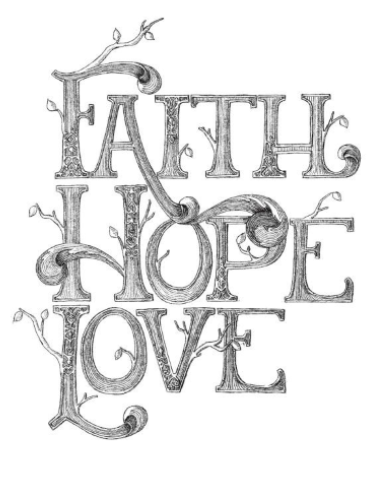 FAITH
HOPE
LOVE